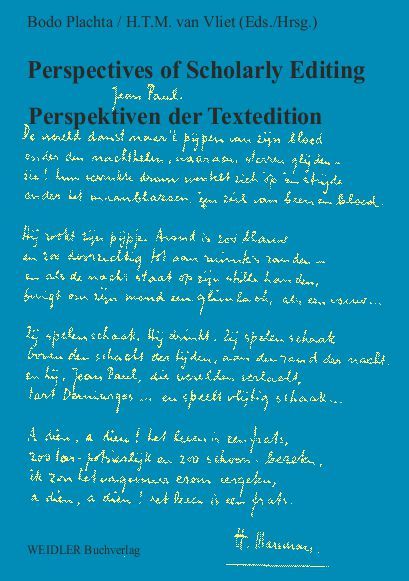 Bodo Plachta / H.T.M. van Vliet (Eds./Hrsg.)
Perspectives of Scholarly Editing
Jean Paul.
Perspektiven der Textedition
De wereld danst naar 't pijpen van zijn bloed
onder den nachthelm, waaraan sterren glijden –
zie! hun dronk zich op
onder het zijn ziel van been en bloed.
Hij rookt zijn pijpje. Avond is zoo blauw
en zoo doorzichtig tot aan ruimte's randen –
en als de nacht staat op zijn stille handen,
buigt om zijn mond een glimlach, als een vrouw...
Zij spelen schaak. Hij drinkt. Zij spelen schaak
boven den schacht der tijden, aan den rand der nacht
en hij, Jean Paul, die werelden verlacht,
tart Demiurgos... en speelt vlijtig schaak...
A dieu, a dieu! het leven is een frats,
zoo en zoo schoon
ik zou het
a dieu, a dieu! het leven is een frats.
H. Marsman.
WEIDLER Buchverlag